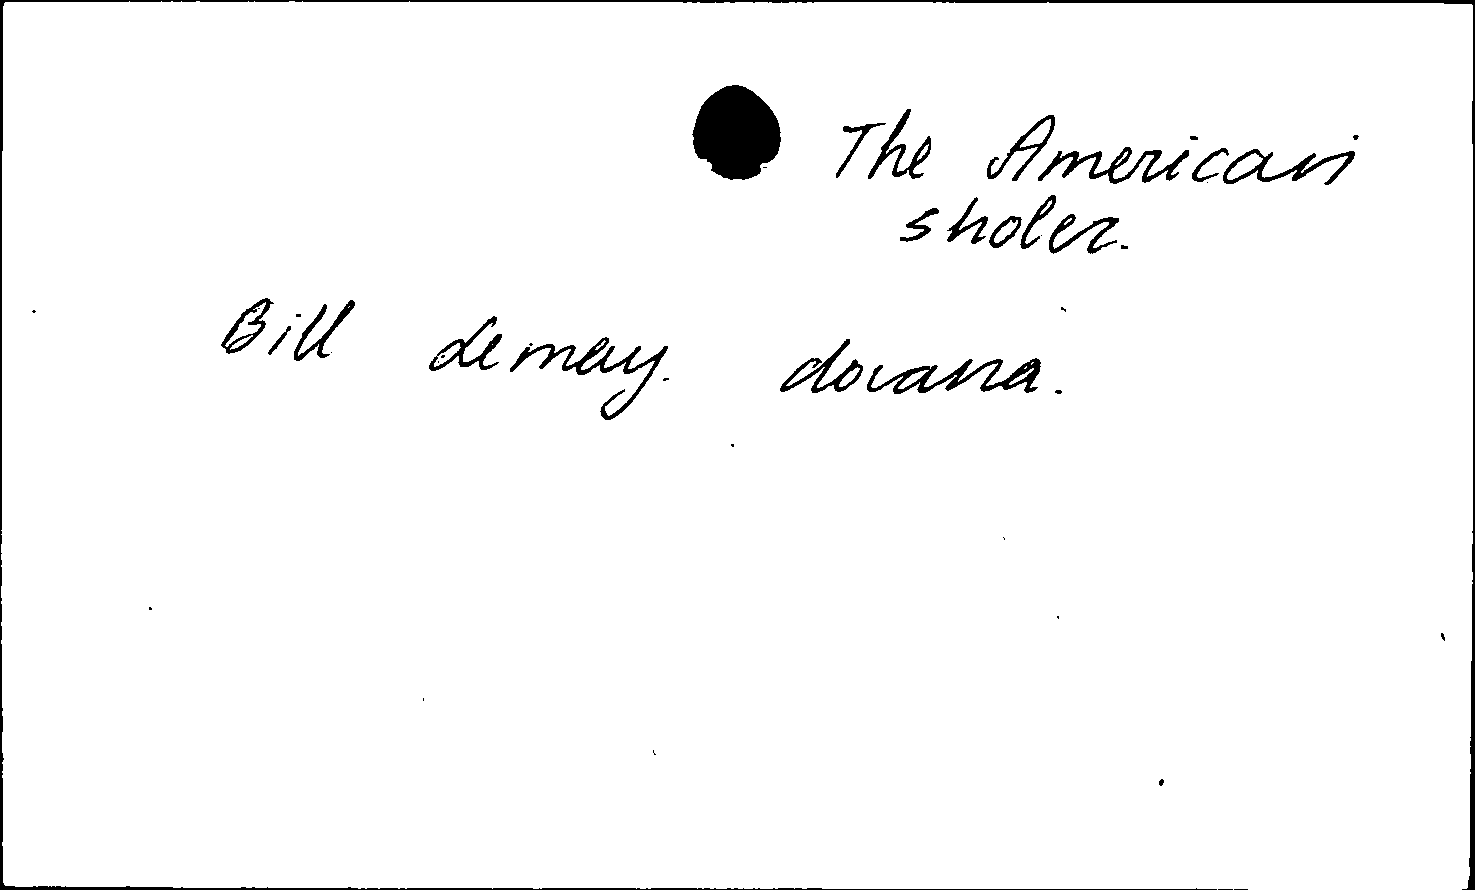 The American
sholer.
Bill Lemay. dovana.